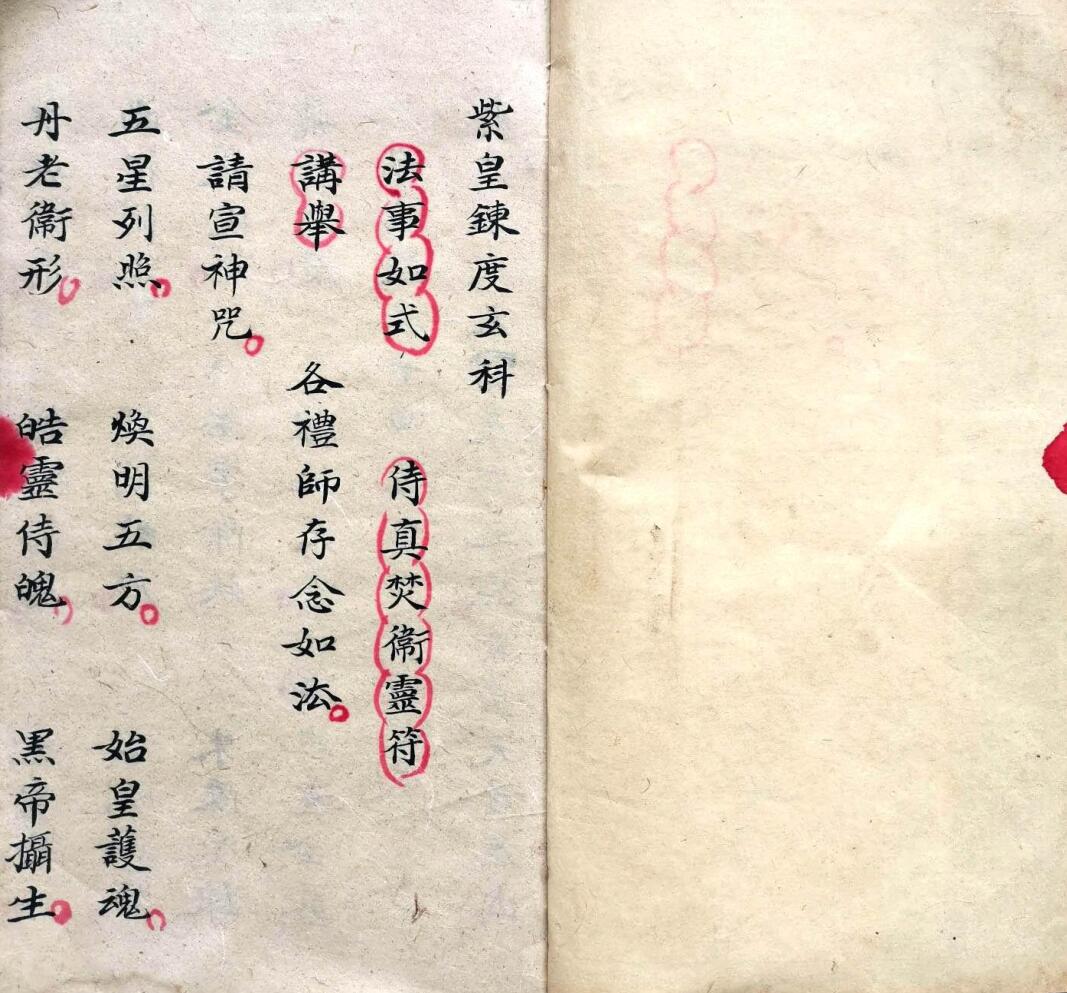 紫皇鍊度玄科
法事如式 侍真焚衞靈符
講舉 各禮師存念如法
請宣神咒
五星列照 煥明五方 始皇護魂
丹老衞形 皓靈侍魄 黑帝攝生